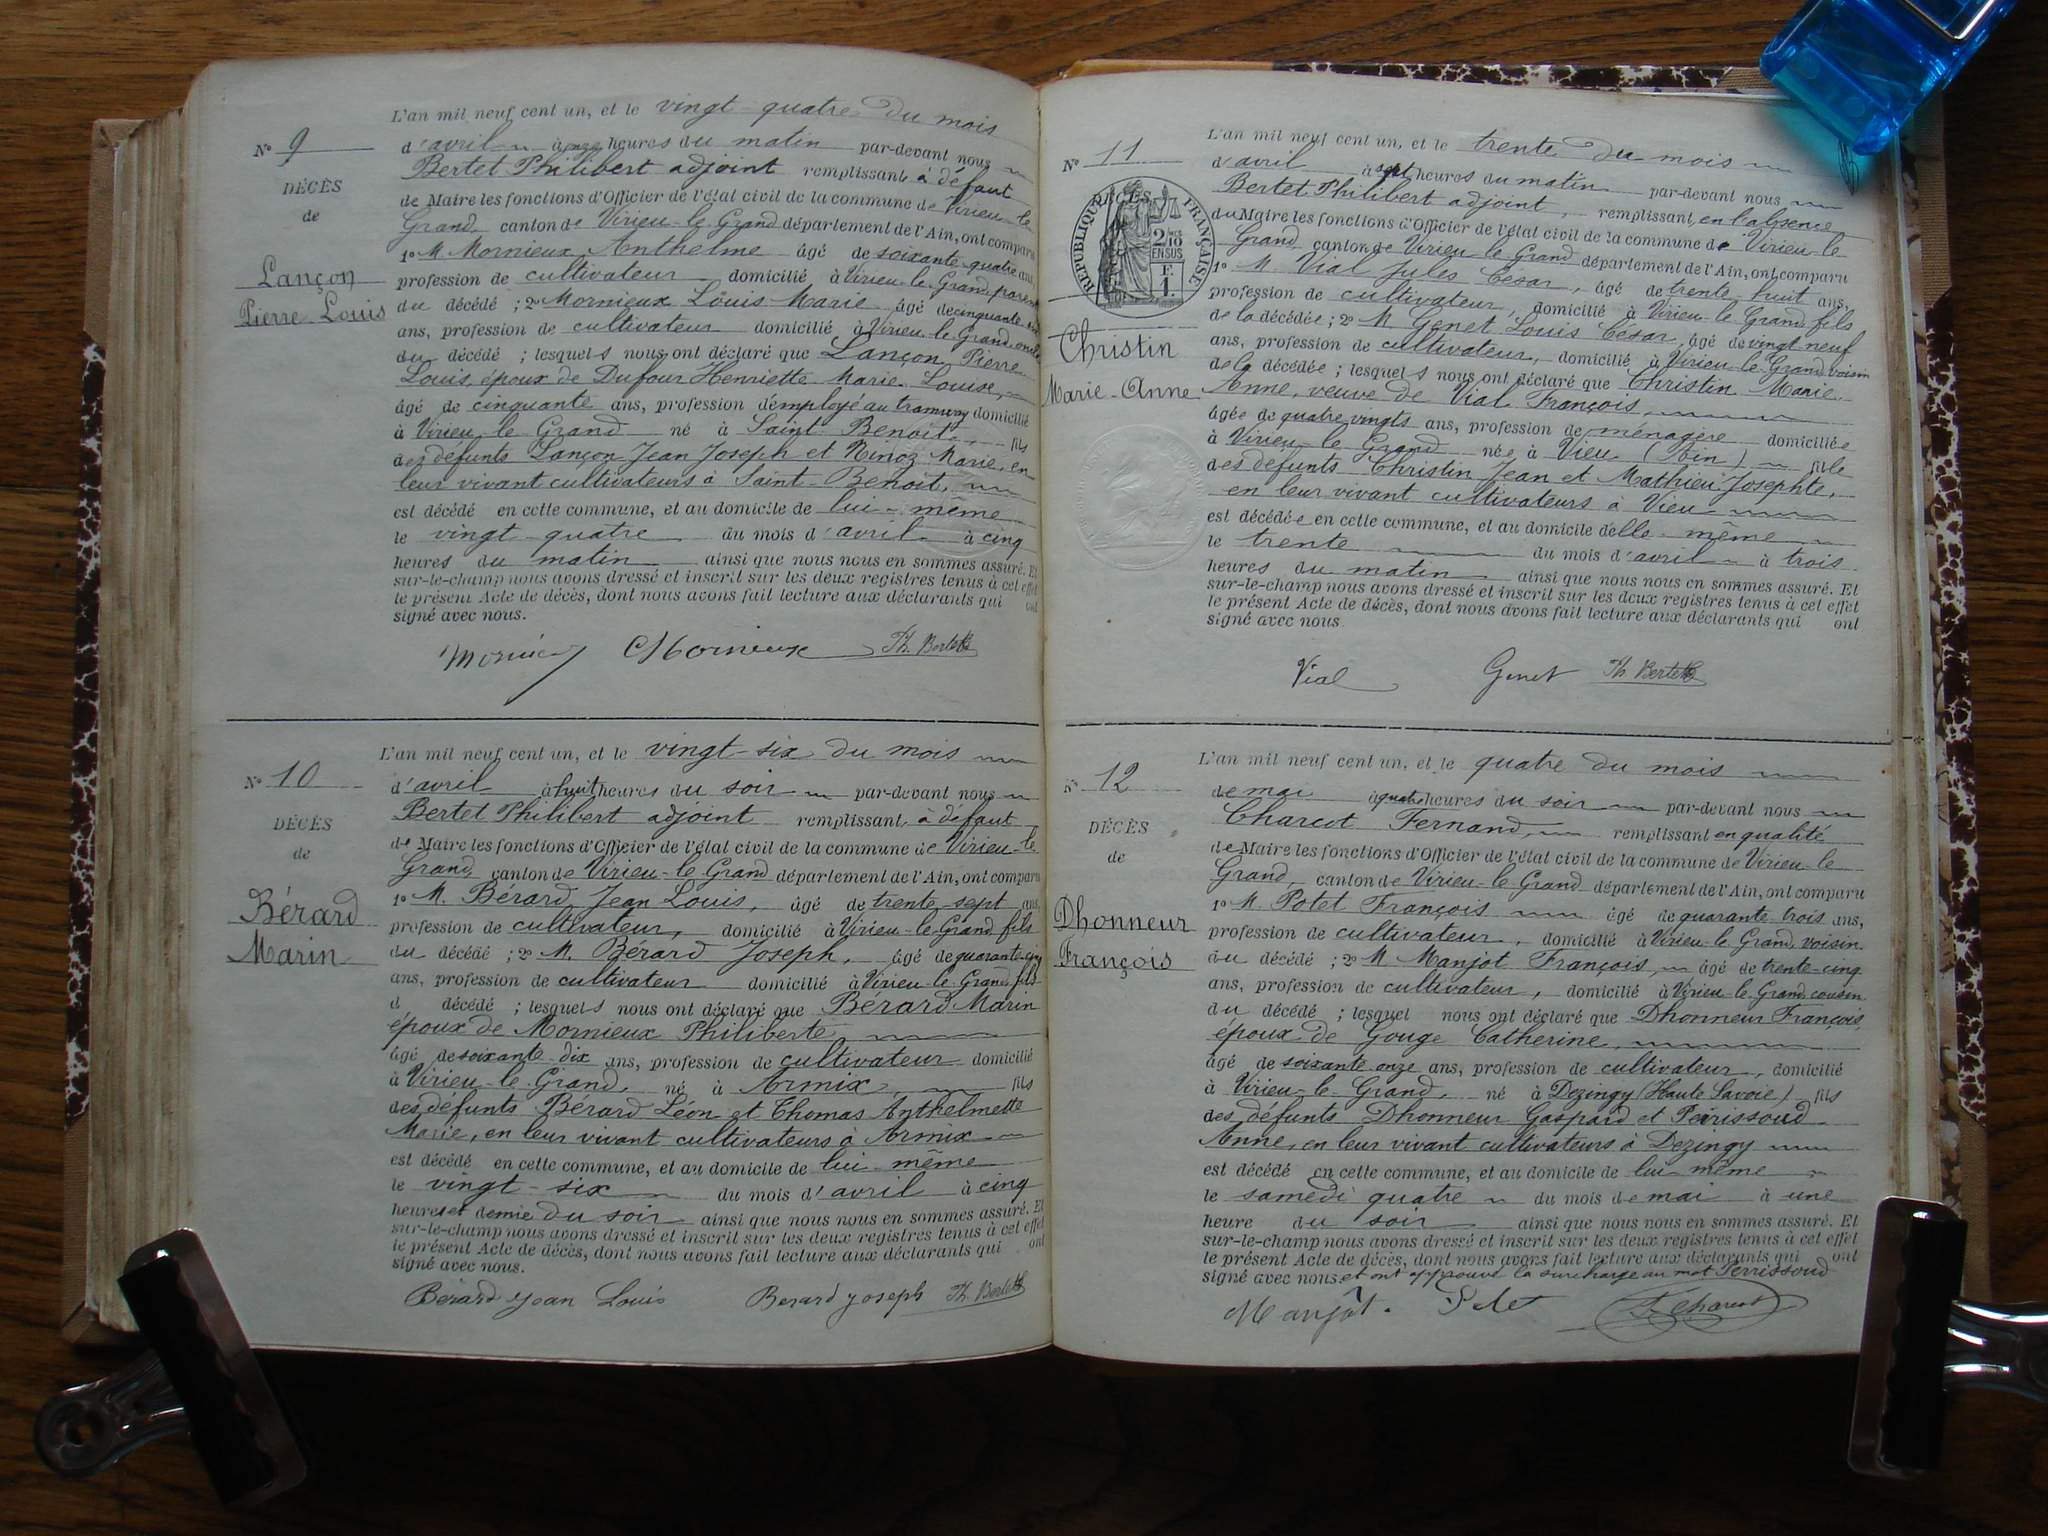 L'an mil neuf cent un, et le vingt-quatre du mois
N° 9
d'avril à onze heures du matin par-devant nous
Bertet Philibert adjoint remplissant à défaut
DÉCÈS
de Maire les fonctions d'Officier de l'état civil de la commune de Virieu-le
de
Grand canton de Virieu-le-Grand département de l'Ain, ont comparu
1° M. Mornieux Anthelme âgé de soixante-quatre ans,
Lançon
Pierre Louis
profession de cultivateur domicilié à Virieu-le-Grand parent
du décédé ; 2° Mornieux Louis Marie âgé de cinquante
ans, profession de cultivateur domicilié à Virieu-le-Grand
du décédé ; lesquels nous ont déclaré que Lançon Pierre
Louis, époux de Dufour Henriette Marie Louise,
âgé de cinquante ans, profession d'employé au tramway domicilié
à Virieu-le-Grand né à Saint-Benoit, fils
des défunts Lançon Jean Joseph et Ninoz Marie, en
leur vivant cultivateurs à Saint-Benoit,
est décédé en cette commune, et au domicile de lui-même
le vingt-quatre du mois d'avril à cinq
heures du matin ainsi que nous nous en sommes assuré. Et
sur-le-champ nous avons dressé et inscrit sur les deux registres tenus à cet effet
le présent Acte de décès, dont nous avons fait lecture aux déclarants qui ont
signé avec nous.
Mornieux Ph. Bertet
L'an mil neuf cent un, et le vingt-six du mois
N° 10
d'avril à huit heures du soir par-devant nous
Bertet Philibert adjoint remplissant à défaut
DÉCÈS
de Maire les fonctions d'Officier de l'état civil de la commune de Virieu-le
de
Grand, canton de Virieu-le-Grand département de l'Ain, ont comparu
Bérard
Marin
1° M. Bérard Jean Louis, âgé de trente-sept ans,
profession de cultivateur, domicilié à Virieu-le-Grand fils
du décédé ; 2° M. Bérard Joseph, âgé de quarante-cinq
ans, profession de cultivateur domicilié à Virieu-le-Grand fils
d décédé ; lesquels nous ont déclaré que Bérard Marin
époux de Mornieux Philiberte,
âgé de soixante-dix ans, profession de cultivateur domicilié
à Virieu-le-Grand, né à Armix, fils
des défunts Bérard Léon et Thomas Anthelmette
Marie, en leur vivant cultivateurs à Armix
est décédé en cette commune, et au domicile de lui-même
le vingt-six du mois d'avril à cinq
heures et demie du soir ainsi que nous nous en sommes assuré. Et
sur-le-champ nous avons dressé et inscrit sur les deux registres tenus à cet effet
le présent Acte de décès, dont nous avons fait lecture aux déclarants qui ont
signé avec nous.
Bérard Jean Louis Berard Joseph Ph. Bertet
L'an mil neuf cent un, et le trente du mois
N° 11
d'avril à sept heures du matin par-devant nous
Bertet Philibert adjoint, remplissant en l'absence
RÉPUBLIQUE FRANÇAISE
2/10 EN SUS
F. 1.
du Maire les fonctions d'Officier de l'état civil de la commune de Virieu-le
Grand canton de Virieu-le-Grand département de l'Ain, ont comparu
1° M. Vial Jules César, âgé de trente-huit ans,
profession de cultivateur, domicilié à Virieu-le-Grand fils
Christin
Marie-Anne
de la décédée ; 2° M. Genet Louis César, âgé de vingt-neuf
ans, profession de cultivateur, domicilié à Virieu-le-Grand voisin
de la décédée ; lesquels nous ont déclaré que Christin Marie
Anne, veuve de Vial François,
âgée de quatre-vingts ans, profession de ménagère domiciliée
à Virieu-le-Grand née à Vieu (Ain) fille
des défunts Christin Jean et Mathieu Josephte,
en leur vivant cultivateurs à Vieu
est décédée en cette commune, et au domicile d'elle-même
le trente du mois d'avril à trois
heures du matin ainsi que nous nous en sommes assuré. Et
sur-le-champ nous avons dressé et inscrit sur les deux registres tenus à cet effet
le présent Acte de décès, dont nous avons fait lecture aux déclarants qui ont
signé avec nous
Vial Genet Ph. Bertet
L'an mil neuf cent un, et le quatre du mois
N° 12
de mai à quatre heures du soir par-devant nous
Charcot Fernand, remplissant en qualité
DÉCÈS
de Maire les fonctions d'Officier de l'état civil de la commune de Virieu-le
de
Grand, canton de Virieu-le-Grand département de l'Ain, ont comparu
Dhonneur
François
1° M. Potet François âgé de quarante-trois ans,
profession de cultivateur, domicilié à Virieu-le-Grand, voisin
du décédé ; 2° M Manjot François, âgé de trente-cinq
ans, profession de cultivateur, domicilié à Virieu-le-Grand cousin
du décédé ; lesquel nous ont déclaré que Dhonneur François,
époux de Gouge Catherine,
âgé de soixante-onze ans, profession de cultivateur, domicilié
à Virieu-le-Grand, né à Dozingy (Haute Savoie) fils
des défunts Dhonneur Gaspard et Perrissoud
Anne, en leur vivant cultivateurs à Dezingy
est décédé en cette commune, et au domicile de lui-même
le samedi quatre du mois de mai à une
heure du soir ainsi que nous nous en sommes assuré. Et
sur-le-champ nous avons dressé et inscrit sur les deux registres tenus à cet effet
le présent Acte de décès, dont nous avons fait lecture aux déclarants qui ont
signé avec nous et ont approuvé la surcharge au mot Perrissoud
Manjot. Potet F. Charcot